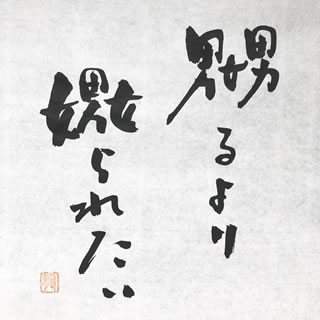 嬲るより
嫐られたい